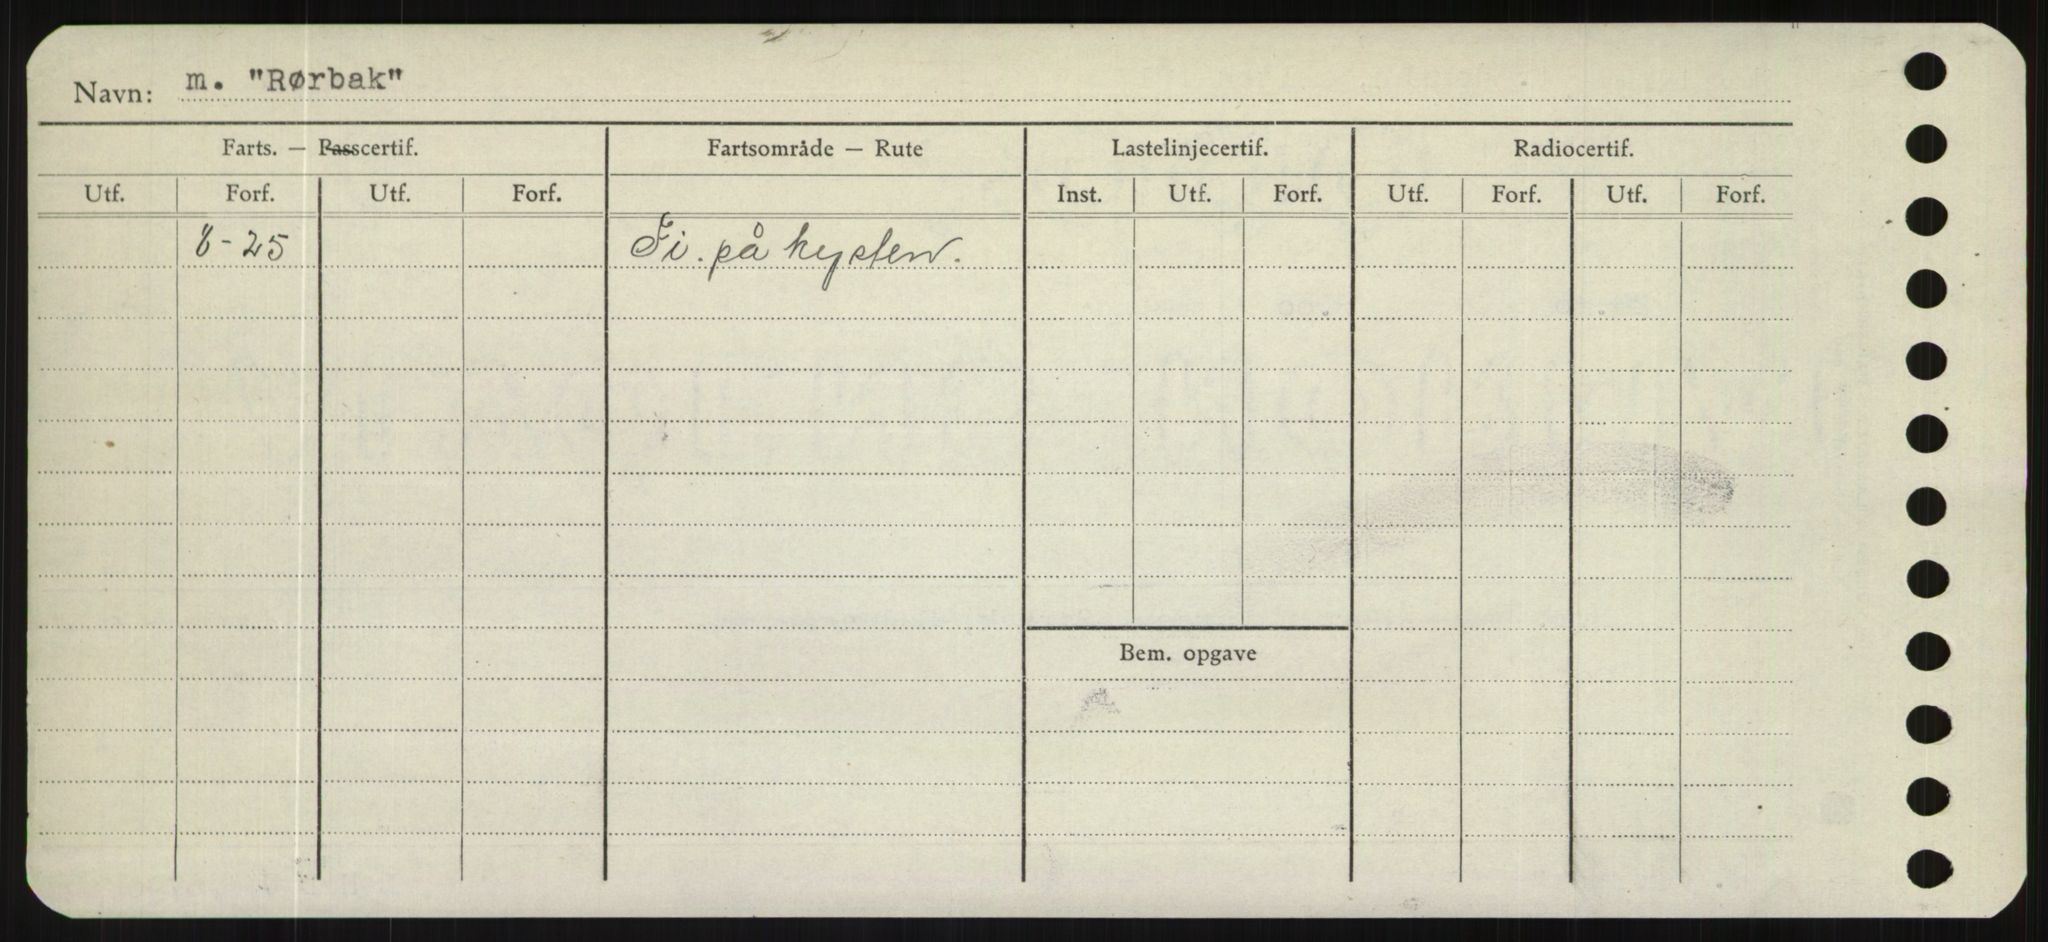 Navn: m. "Rørbak"
Farts. — Passcertif. Fartsområde — Rute Lastelinjecertif. Radiocertif.
Utf. Forf. Utf. Forf. Inst. Utf. Forf. Utf. Forf. Utf. Forf.
8-25 Fi. på kysten.
Bem. opgave